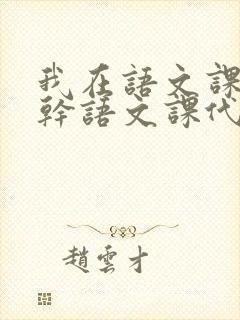 我在語文課
幹語文課代
趙雲才